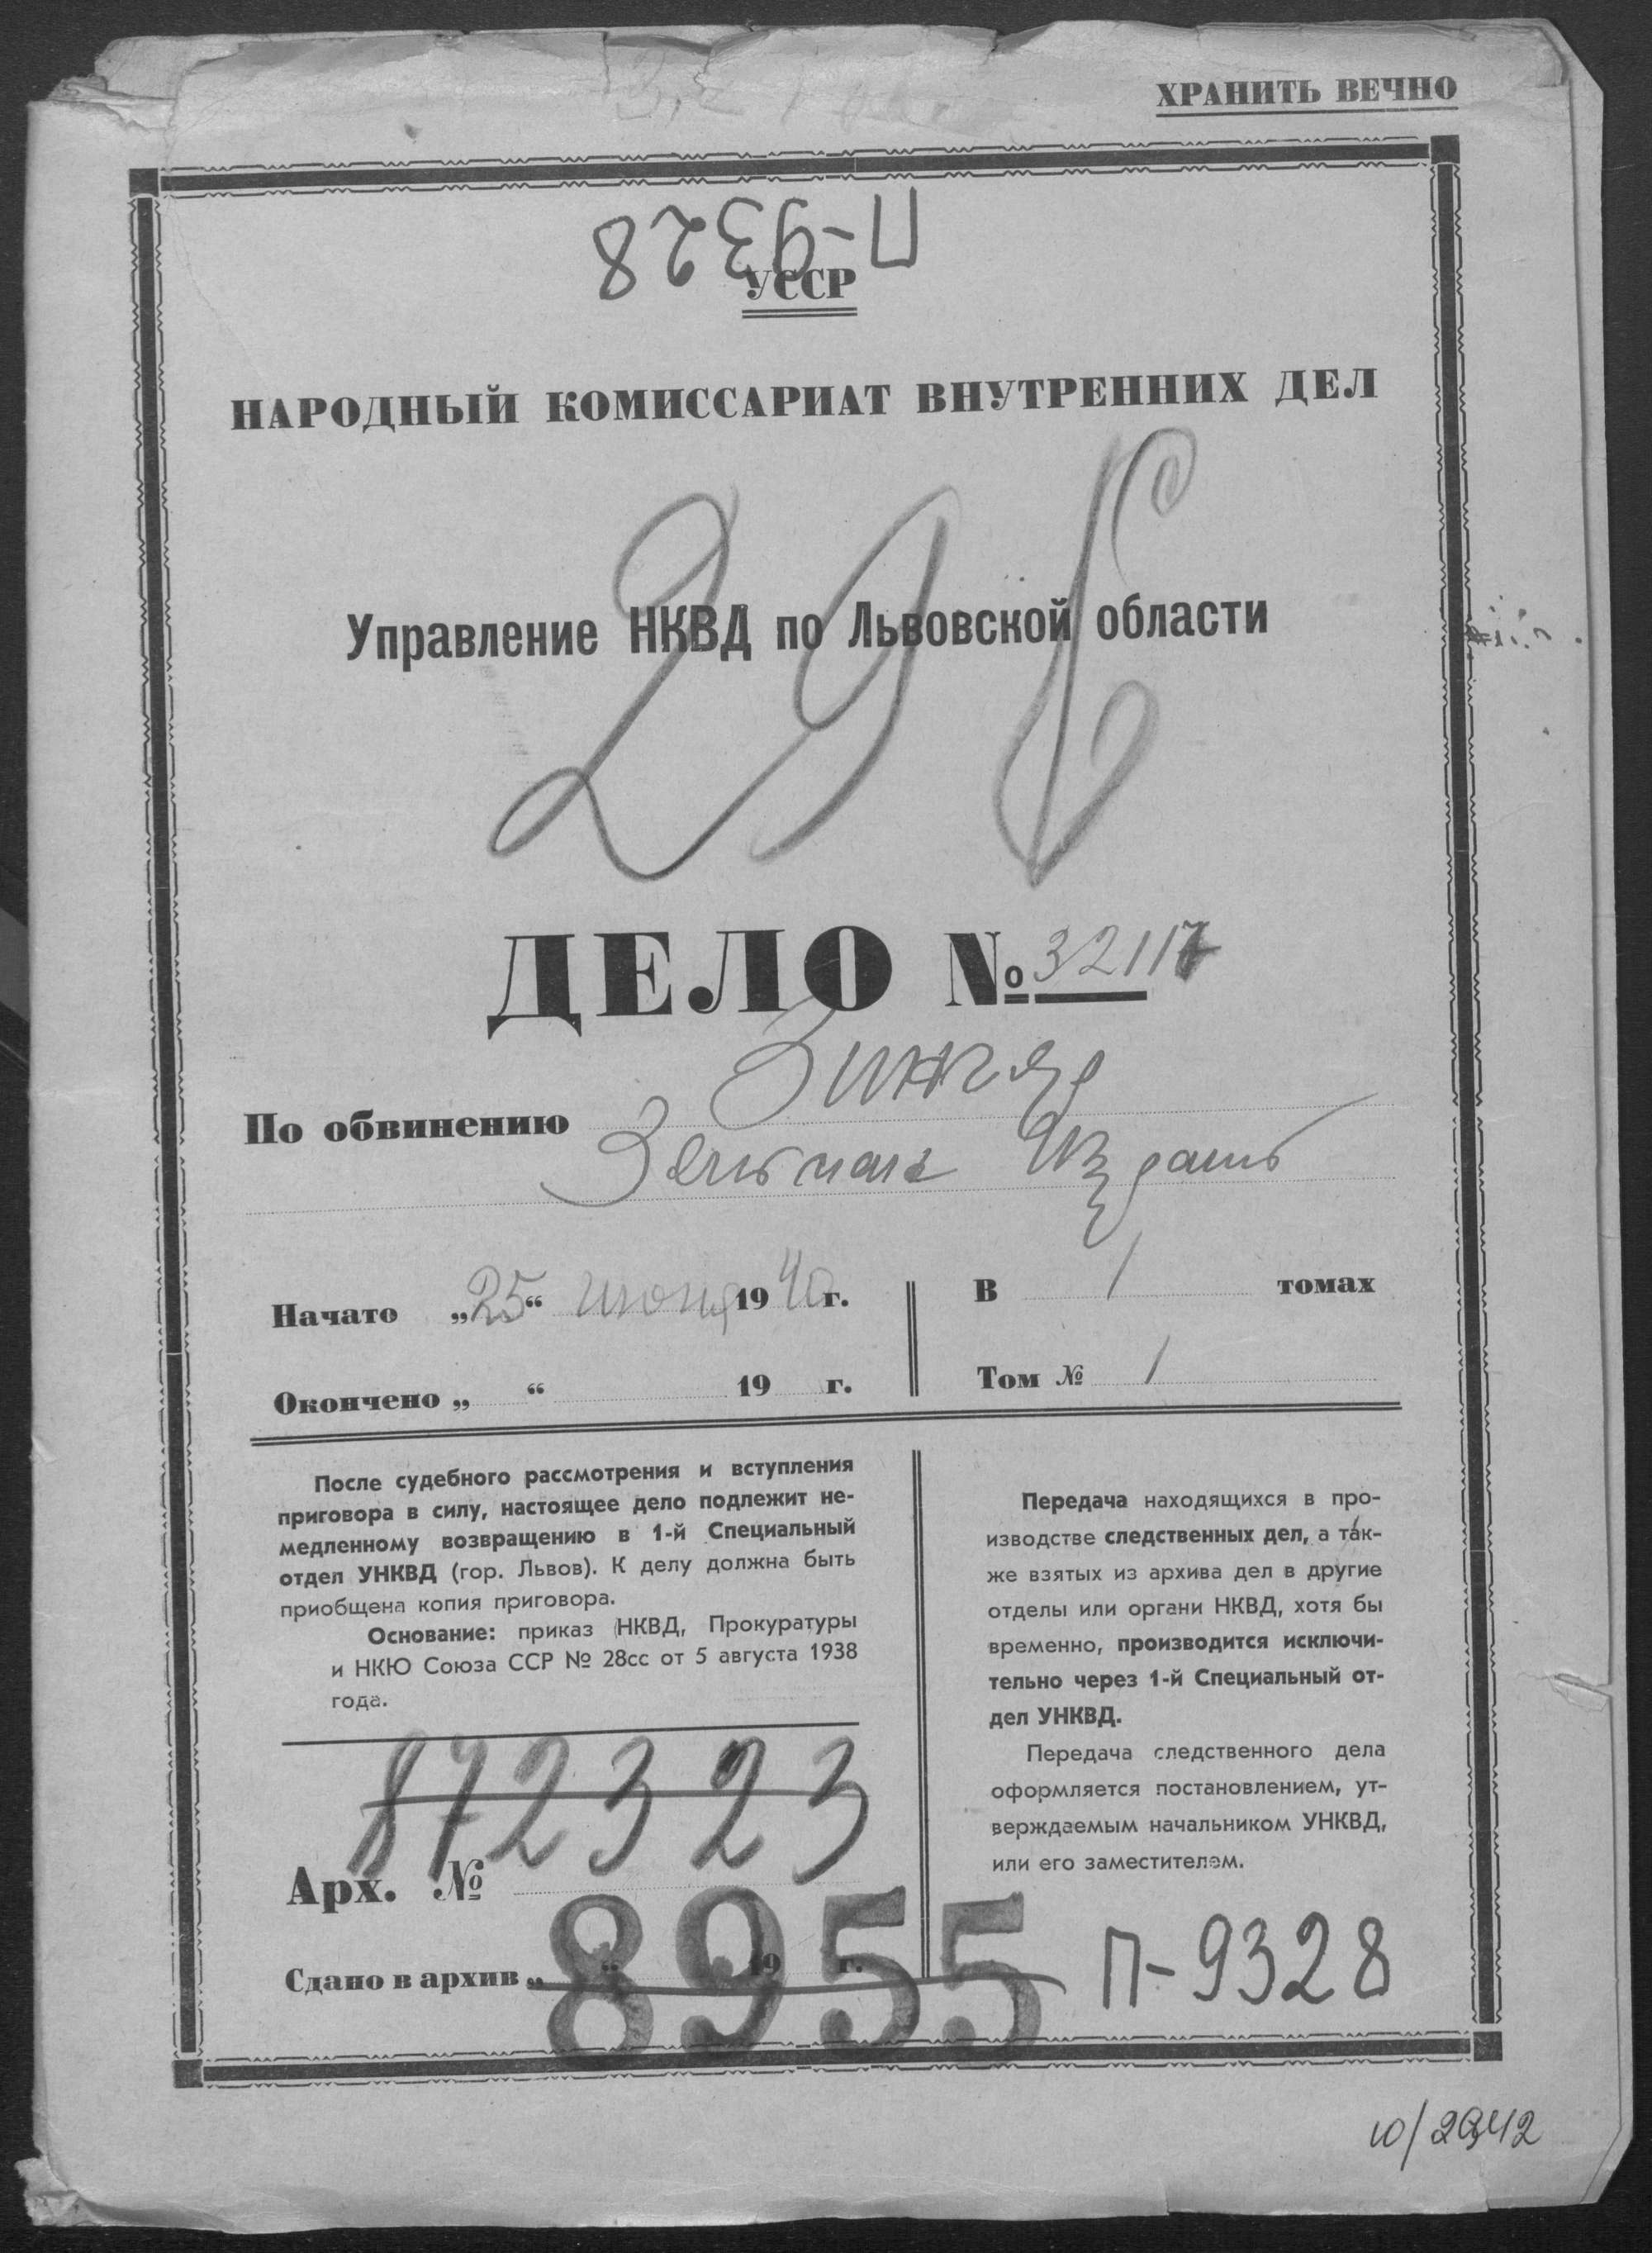 ХРАНИТЬ ВЕЧНО
П-9328
УССР
НАРОДНЫЙ КОМИССАРИАТ ВНУТРЕННИХ ДЕЛ
Управление НКВД по Львовской области
ДЕЛО № 32117
По обвинению
Израиль
Начато „25“ июня 1940 г.
В 1 томах
Окончено „ “ 19 г.
Том № 1
После судебного рассмотрения и вступления
приговора в силу, настоящее дело подлежит не-
медленному возвращению в 1-й Специальный
отдел УНКВД (гор. Львов). К делу должна быть
приобщена копия приговора.
Основание: приказ НКВД, Прокуратуры
и НКЮ Союза ССР № 28сс от 5 августа 1938
года.
Передача находящихся в про-
изводстве следственных дел, а так-
же взятых из архива дел в другие
отделы или органи НКВД, хотя бы
временно, производится исключи-
тельно через 1-й Специальный от-
дел УНКВД.
Передача следственного дела
оформляется постановлением, ут-
верждаемым начальником УНКВД,
или его заместителем.
872323
Арх. №
8955
Сдано в архив „ “ 19 г.
П-9328